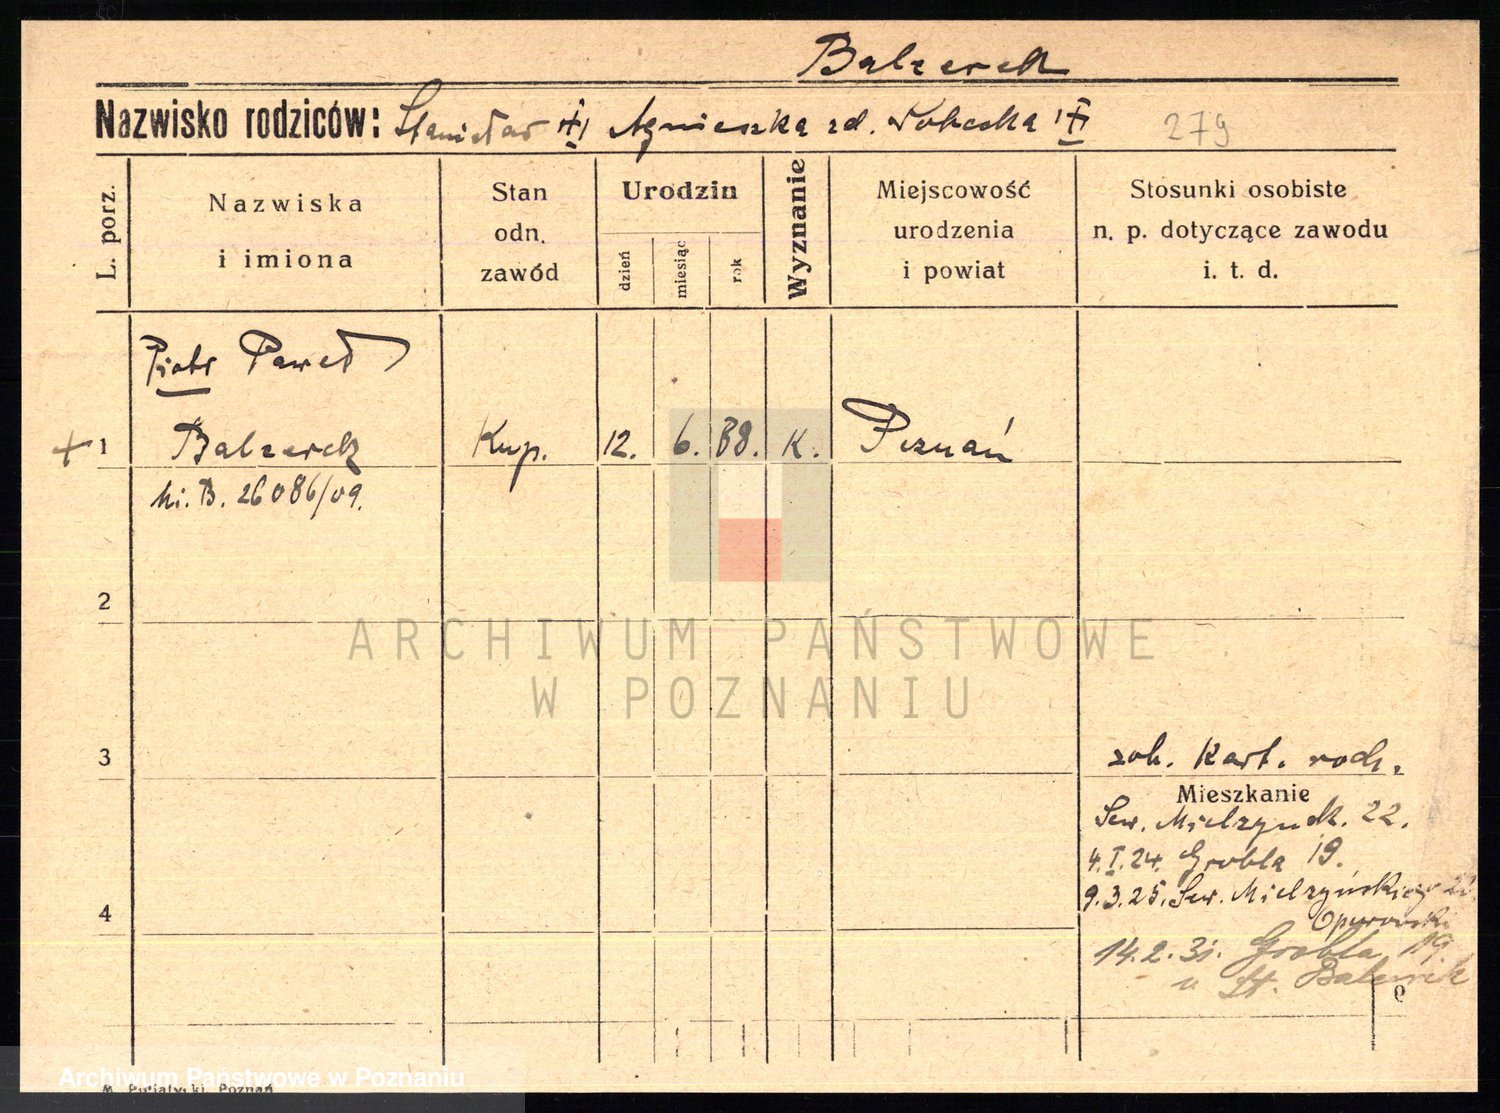 Balzerek
Nazwisko rodziców: Stanisław Agnieszka zd. 279
L. porz.
Nazwiska i imiona
Stan odn. zawód
Urodzin
dzień
miesiąc
rok
Wyznanie
Miejscowość urodzenia i powiat
Stosunki osobiste n. p. dotyczące zawodu i. t. d.
Piotr Paweł
1 Balzerek Kup. 12. 6. 88. K. Poznań
B. 26086/09.
2
3
zob. Kart. rodz.
Mieszkanie
Sew. Mielżyńsk. 22.
4.I.24. Grobla 19.
9.3.25. Sew. Mielżyńskiego
4
14.2.31. Grobla 19
u St. Balzerek
ARCHIWUM PAŃSTWOWE
W POZNANIU
Archiwum Państwowe w Poznaniu
Poznań